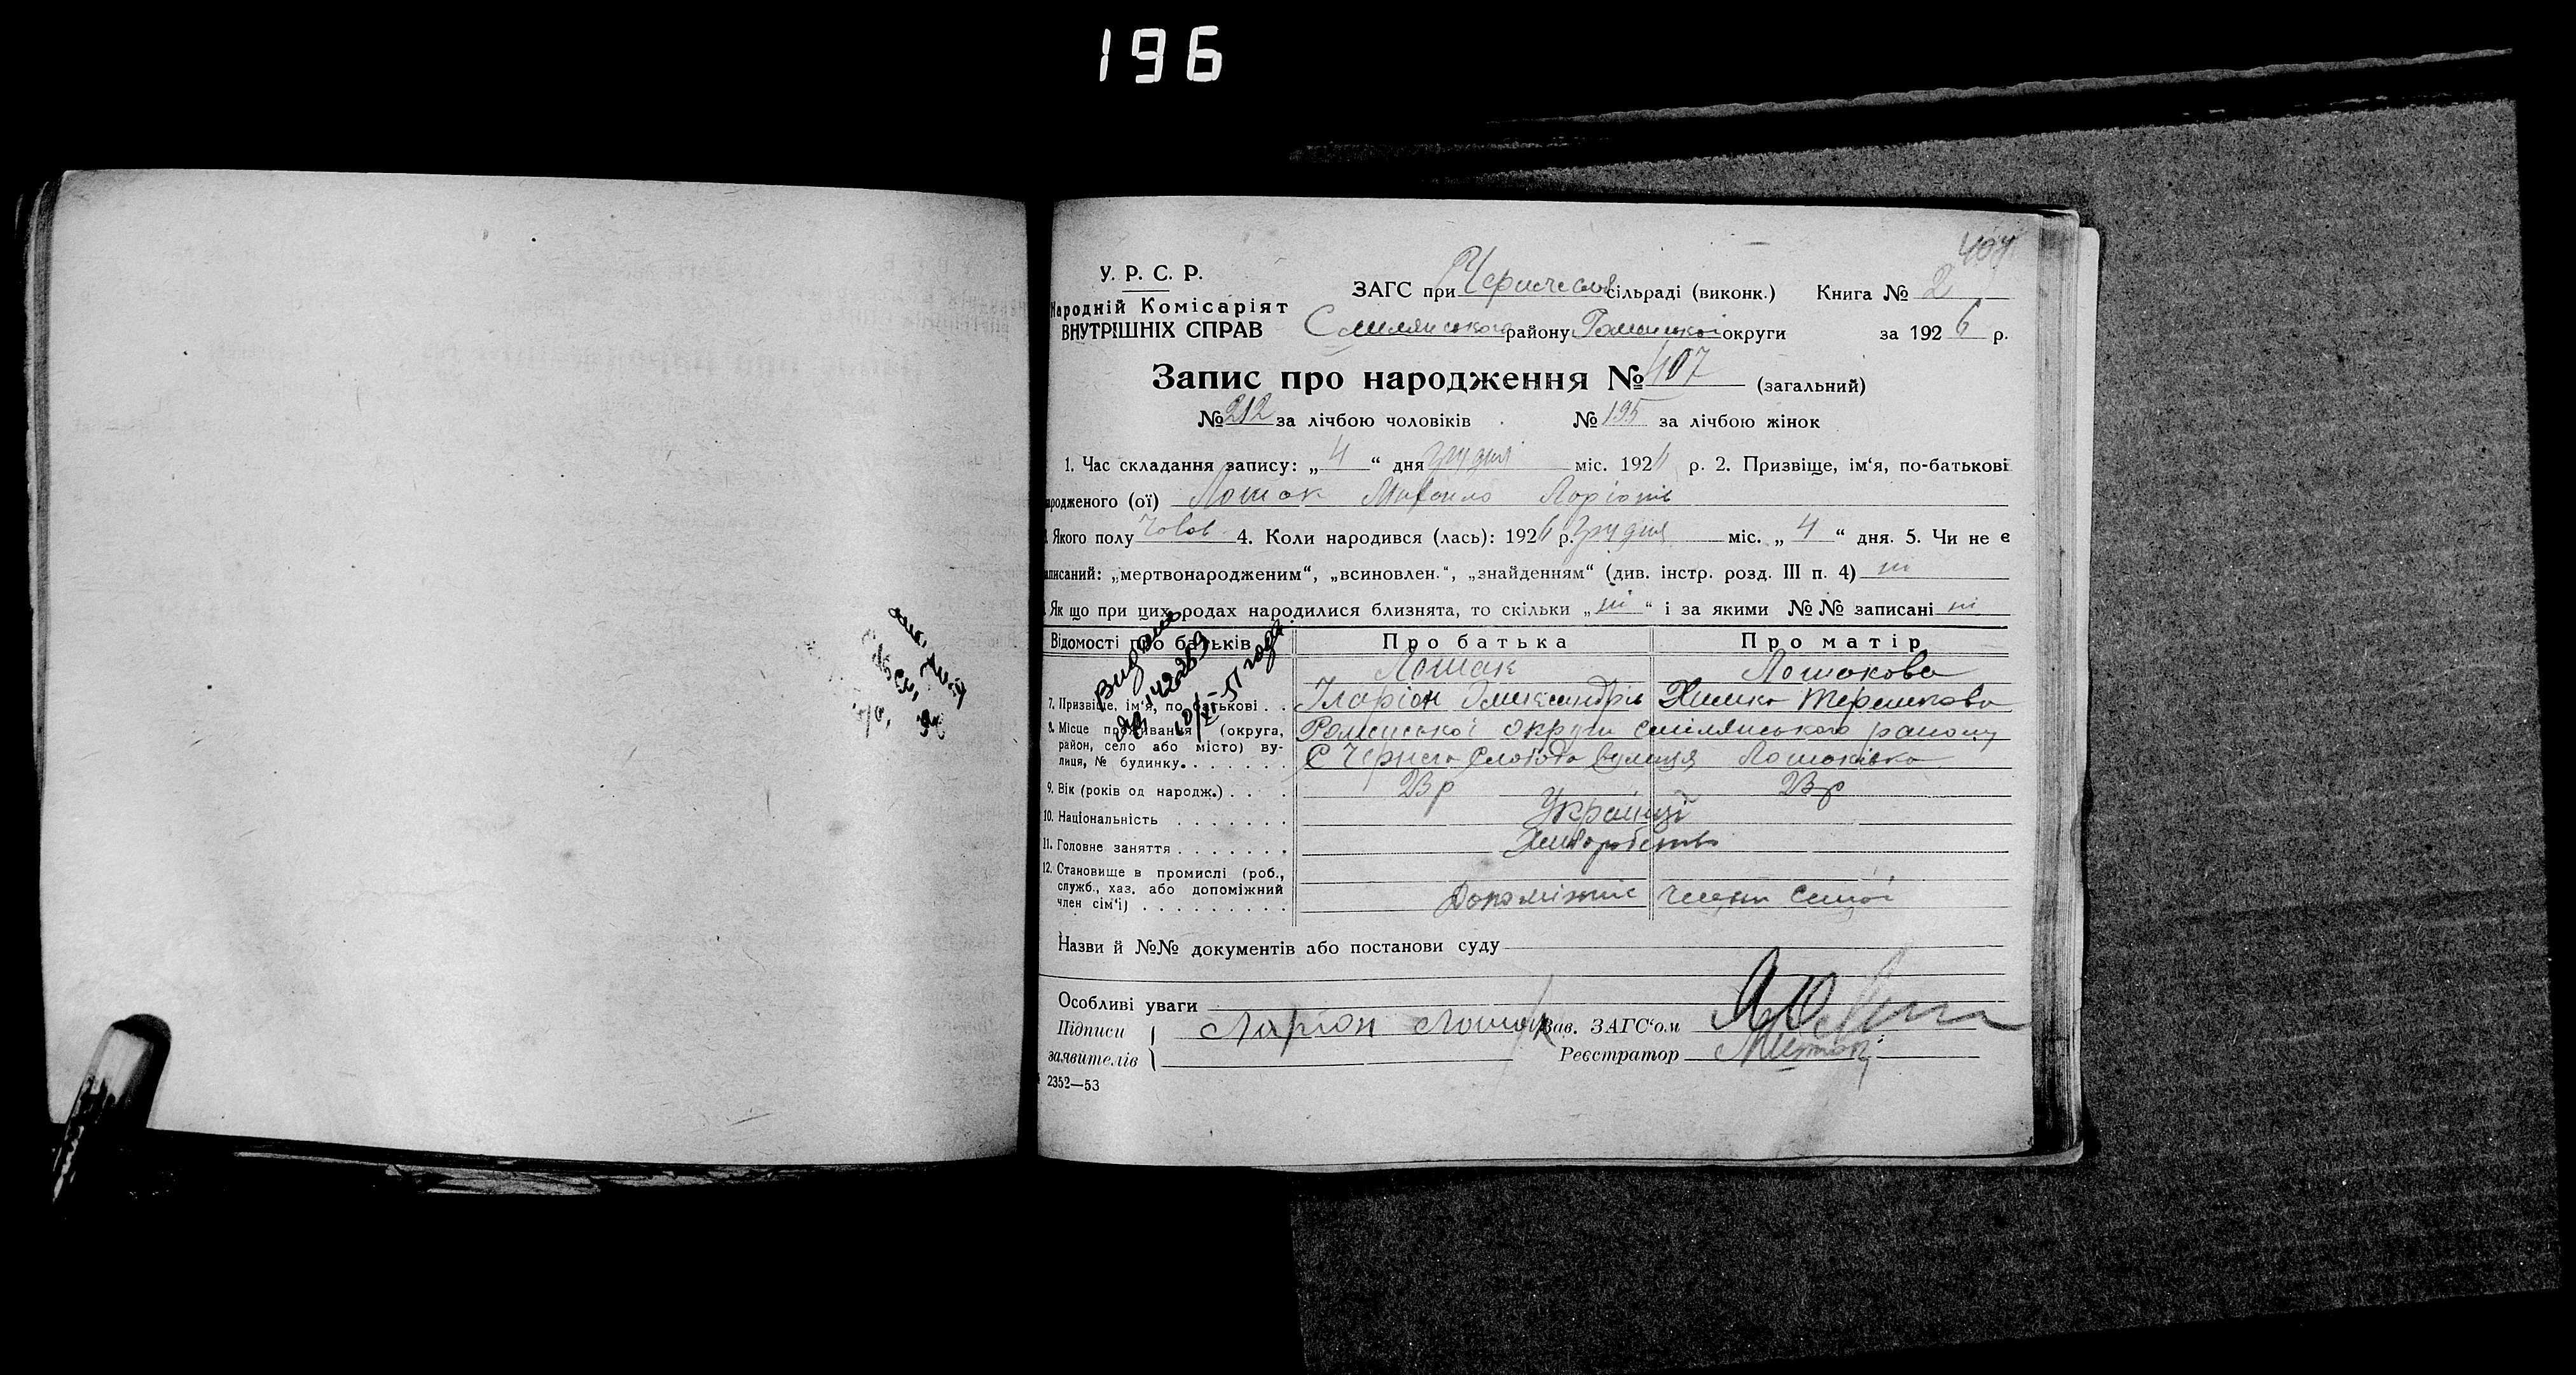 196
404
У. Р. С. Р.
Народній Комісаріят
ВНУТРІШНІХ СПРАВ
ЗАГС при Чернеслоб сільраді (виконк.) Книга № 2
Смілянського району Роменської округи за 1926 р.
Запис про народження № 407 (загальний)
№ 212 за лічбою чоловіків № 195 за лічбою жінок
1. Час складання запису: „ 4 “ дня грудня міс. 1926 р. 2. Призвіще, ім‘я, по-батькові
народженого (ої) Лошак Михайло Ларіонів
Якого полу чолов 4. Коли народився (лась): 1926 р. грудня міс. „ 4 “ дня. 5. Чи не є
записаний: „мертвонародженим“, „всиновлен.“, „знайденням“ (див. інстр. розд. III п. 4) ні
Як що при цих родах народилися близнята, то скільки „ ні “ і за якими №№ записані ні
Відомості про батьків Про батька Про матір
Лошак Лошакова
7. Призвіще, ім‘я, по-батькові . . Іларіон Олександрів Химка Терешкова
8. Місце проживання (округа, район, село або місто) вулиця, № будинку. Роменської округи Смілянського району
С Чернеча Слобода вулиця Лошаківка
9. Вік (років од народж.) . . . 23 р 23 р
10. Національність . . . . . . . Українці
11. Головне заняття . . . . . . . Хліборобство
12. Становище в промислі (роб.,
служб., хаз. або допоміжний
член сім‘ї) . . . . . . . . . Допоміжні члени сем'ї
Назви й №№ документів або постанови суду
Особливі уваги
Підписи Ларіон Лошак Зав. ЗАГС‘ом
заявителів Реєстратор
2352—53